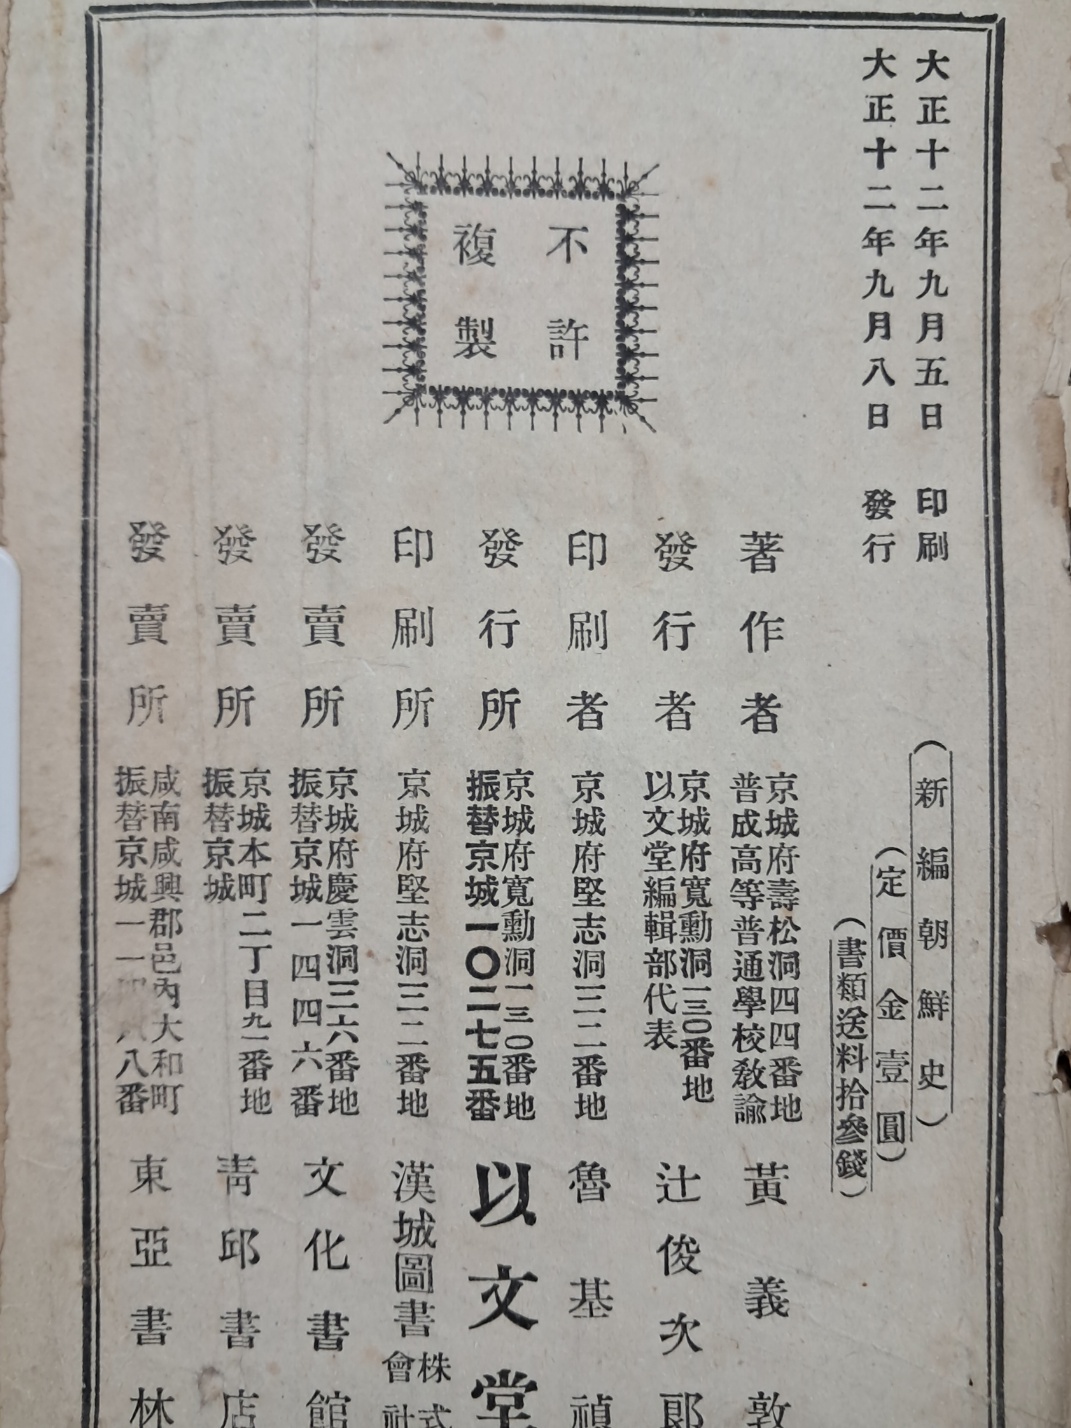 大正十二年九月五日 印刷
大正十二年九月八日 發行
(新編朝鮮史)
(定價金壹圓)
(書類送料拾參錢)
不許
複製
著作者
京城府壽松洞四四番地
普成高等普通學校敎諭
黃義敦
發行者
京城府寬勳洞一三〇番地
以文堂編輯部代表
辻俊次郞
印刷者
京城府堅志洞三二番地
魯基禎
發行所
京城府寬勳洞一三〇番地
振替京城一〇二七五番
以文堂
印刷所
京城府堅志洞三二番地
漢城圖書株式會社
發賣所
京城府慶雲洞三六番地
振替京城一四四六番
文化書館
發賣所
京城本町二丁目九一番地
振替京城
靑邱書店
發賣所
咸南咸興郡邑內大和町
振替京城一一八番
東亞書林